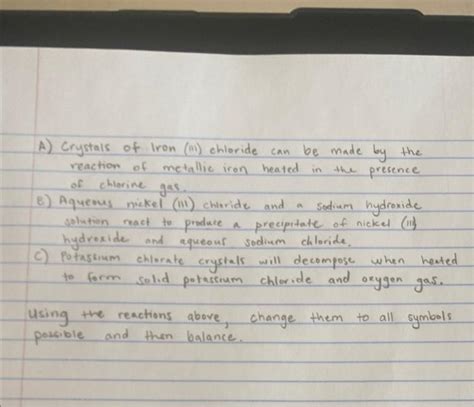 A) Crystals of Iron (III) chloride can be made by the
reaction of metallic iron heated in the presence
of chlorine gas.
B) Aqueous nickel (III) chloride and a sodium hydroxide
solution react to produce a precipitate of nickel (III)
hydroxide and aqueous sodium chloride.
C) Potassium chlorate crystals will decompose when heated
to form solid potassium chloride and oxygen gas.
Using the reactions above, change them to all symbols
possible and then balance.